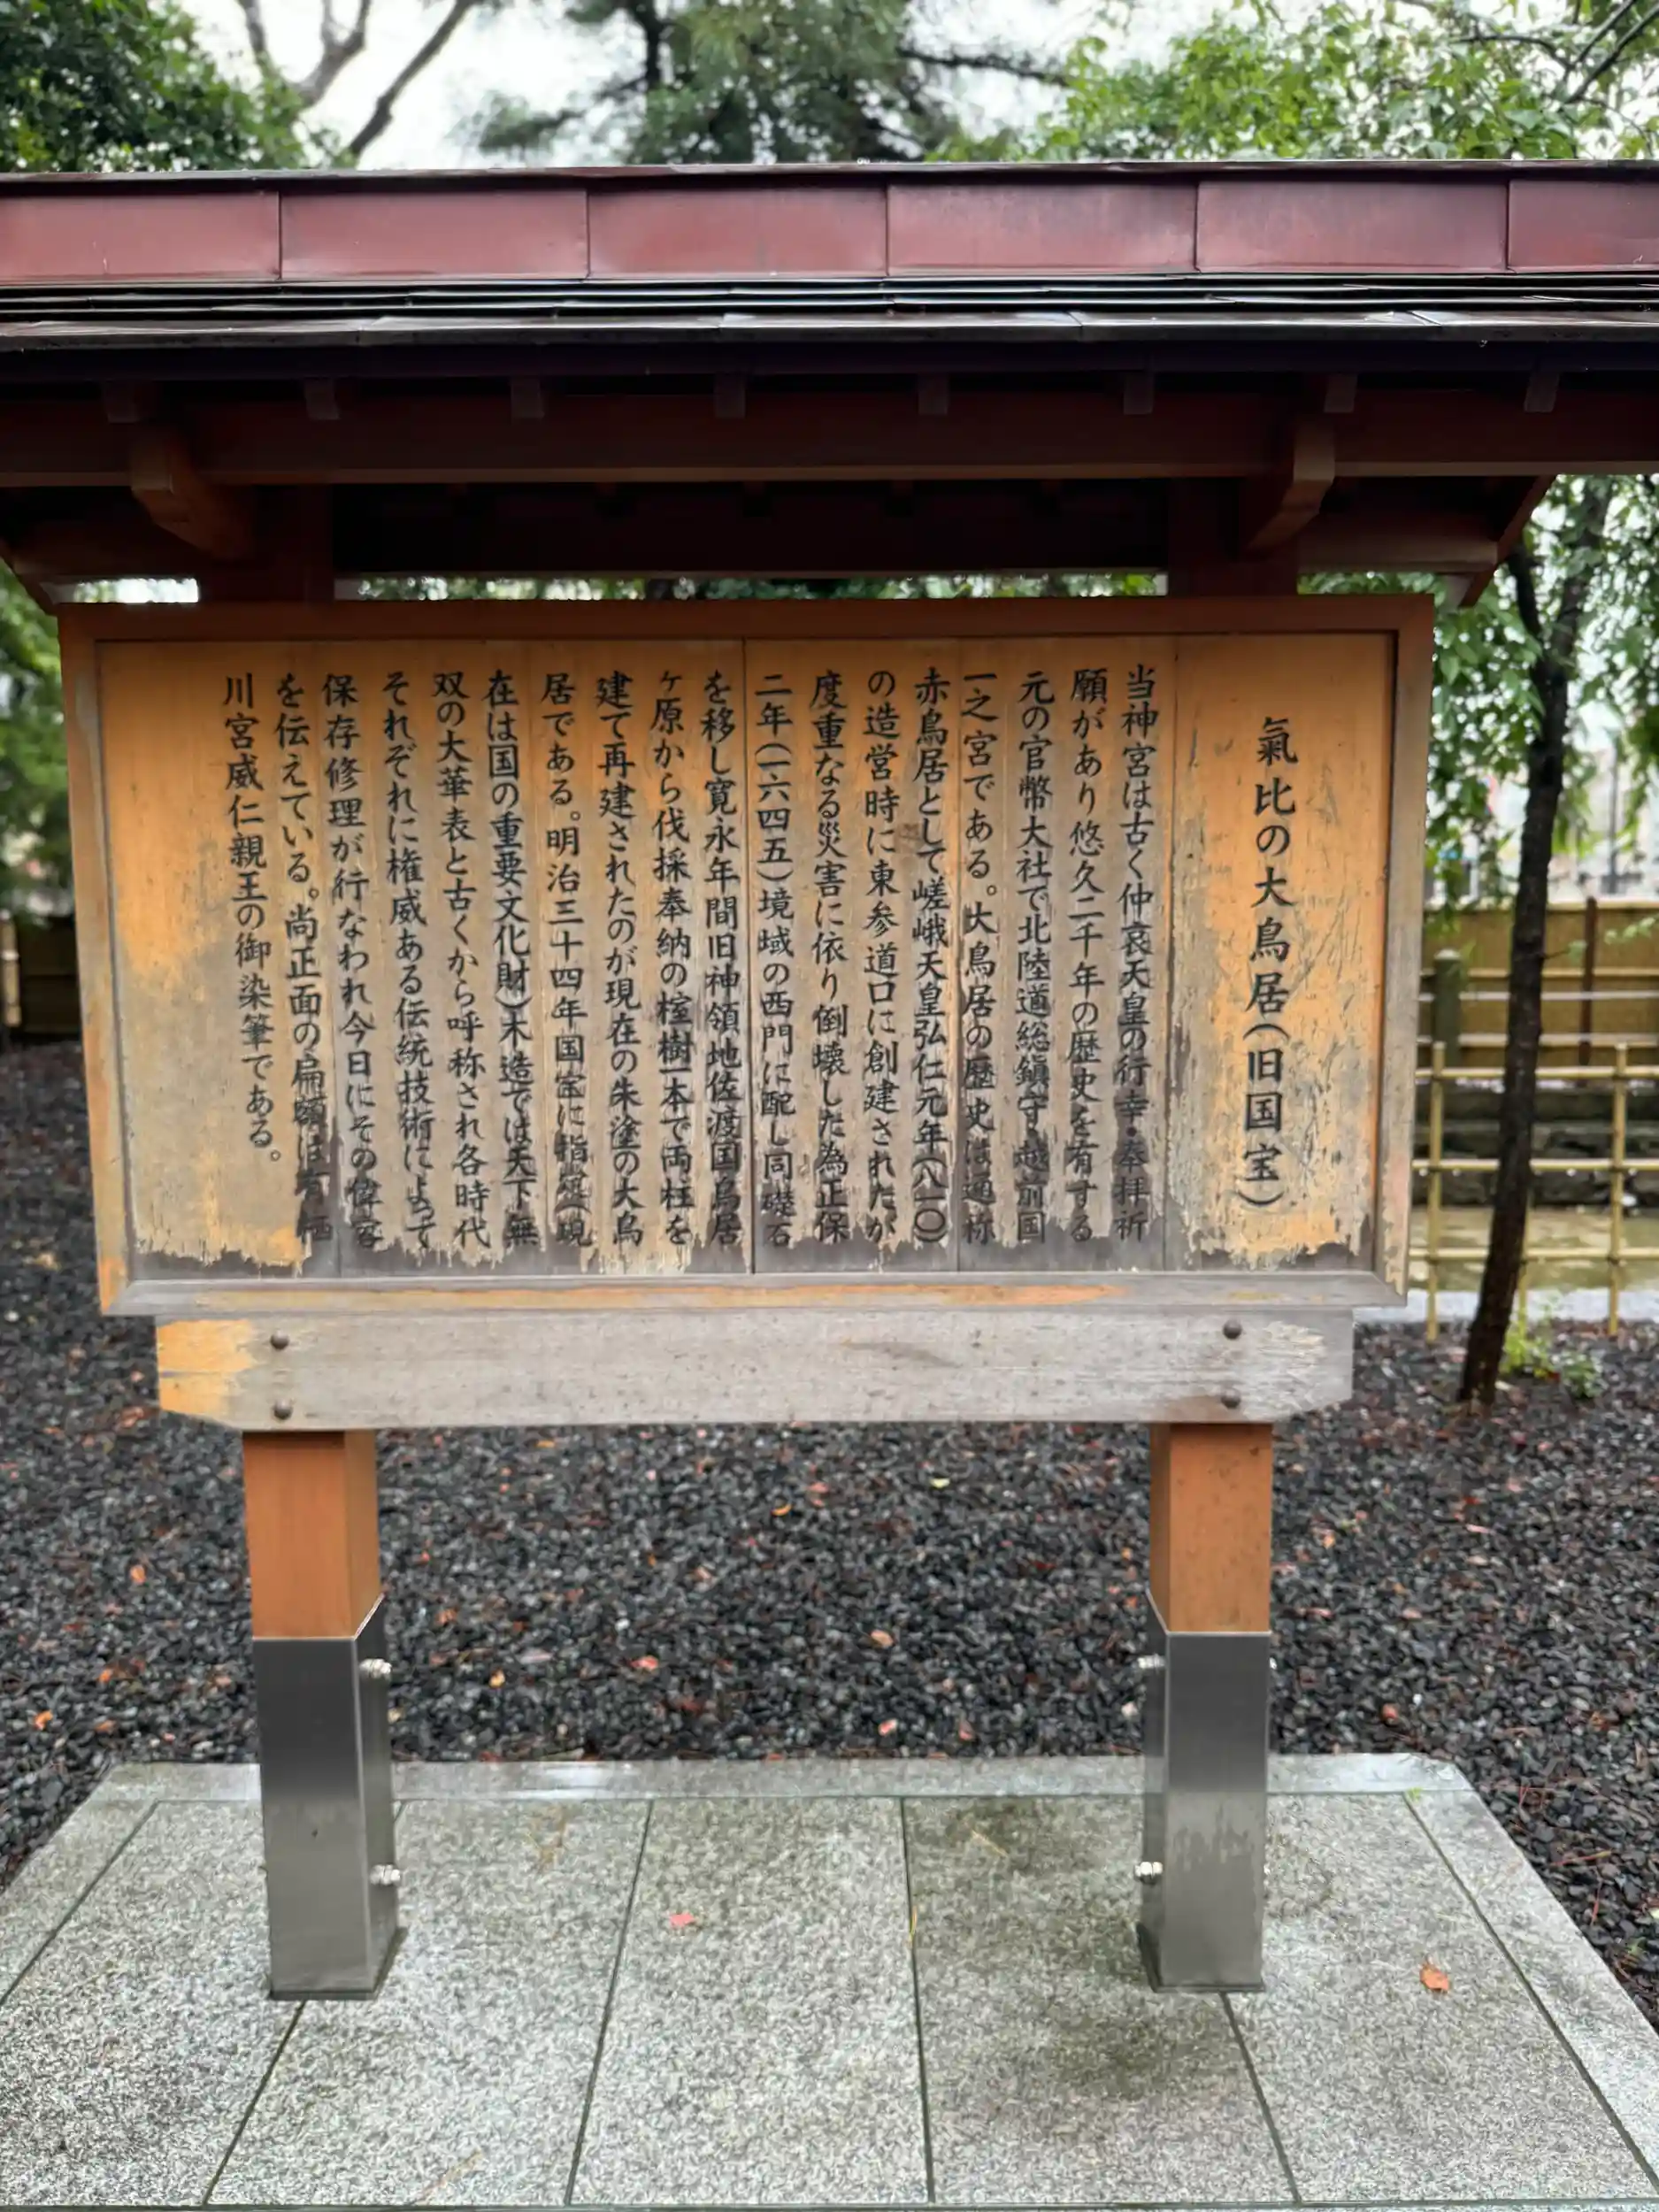 氣比の大鳥居(旧国宝)
当神宮は古く仲哀天皇の行幸・奉拝祈
願があり悠久二千年の歴史を有する
元の官幣大社で北陸道総鎮守越前国
一之宮である。大鳥居の歴史は通称
赤鳥居として嵯峨天皇弘仁元年(八一〇)
の造営時に東参道口に創建されたが
度重なる災害に依り倒壊した為正保
二年(一六四五)境域の西門に配し同礎石
を移し寛永年間旧神領地佐渡国鳥居
ヶ原から伐採奉納の榁樹一本で両柱を
建て再建されたのが現在の朱塗の大鳥
居である。明治三十四年国宝に指定(現
在は国の重要文化財)木造では天下無
双の大華表と古くから呼称され各時代
それぞれに権威ある伝統技術によって
保存修理が行なわれ今日にその偉容
を伝えている。尚正面の扁額は有栖
川宮威仁親王の御染筆である。